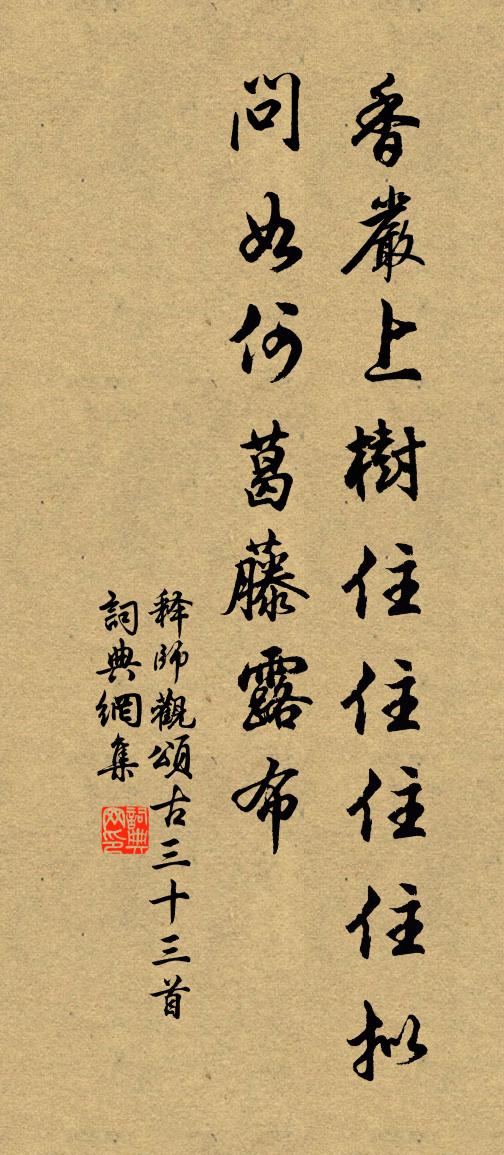 香嚴上樹住住住住拟
問如何葛藤露布
释師觀頌古三十三首
詞典網集
詞典网印